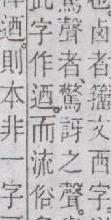 也卥者籒文西字
驚聲者。驚訝之聲。
此字作迺。而流俗
迺。則本非一字